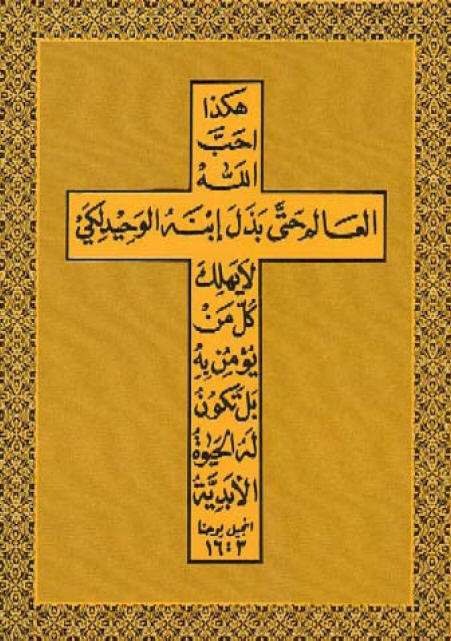 هكذا
احبَّ
الله
العالم حتَّى بَذَلَ إبْنَهُ الوَحِيْد لِكَيْ
لا يَهلِكَ
كُلّ مَنْ
يُؤمِن بِهِ
بَل تَكُونُ
لَهُ الحَيٰوةُ
الأبَدِيَّة
انجيل يوحنا
٣ : ١٦